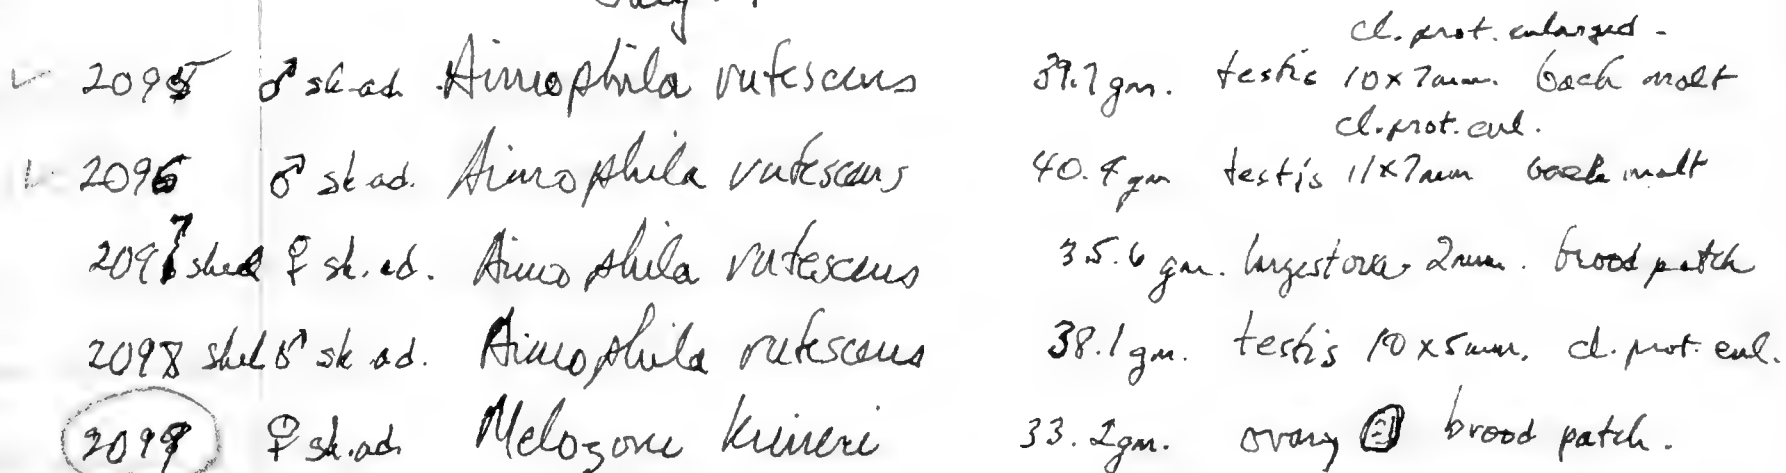 cl. prot. enlarged -
2095 ♂ sk-ad. Aimophila rufescens 39.7 gm. testis 10 x 7 mm. back molt
cl. prot. enl.
2096 ♂ sk ad. Aimophila rufescens 40.4 gm testis 11 x 7 mm back molt
2097 skel ♀ sk. ad. Aimophila rufescens 35.6 gm. largest ova 2 mm. brood patch
2098 skel ♂ sk ad. Aimophila rufescens 38.1 gm. testis 10 x 5 mm. cl. prot. enl.
2099 ♀ sk. ad. Melozone kieneri 33.2 gm. ovary brood patch.